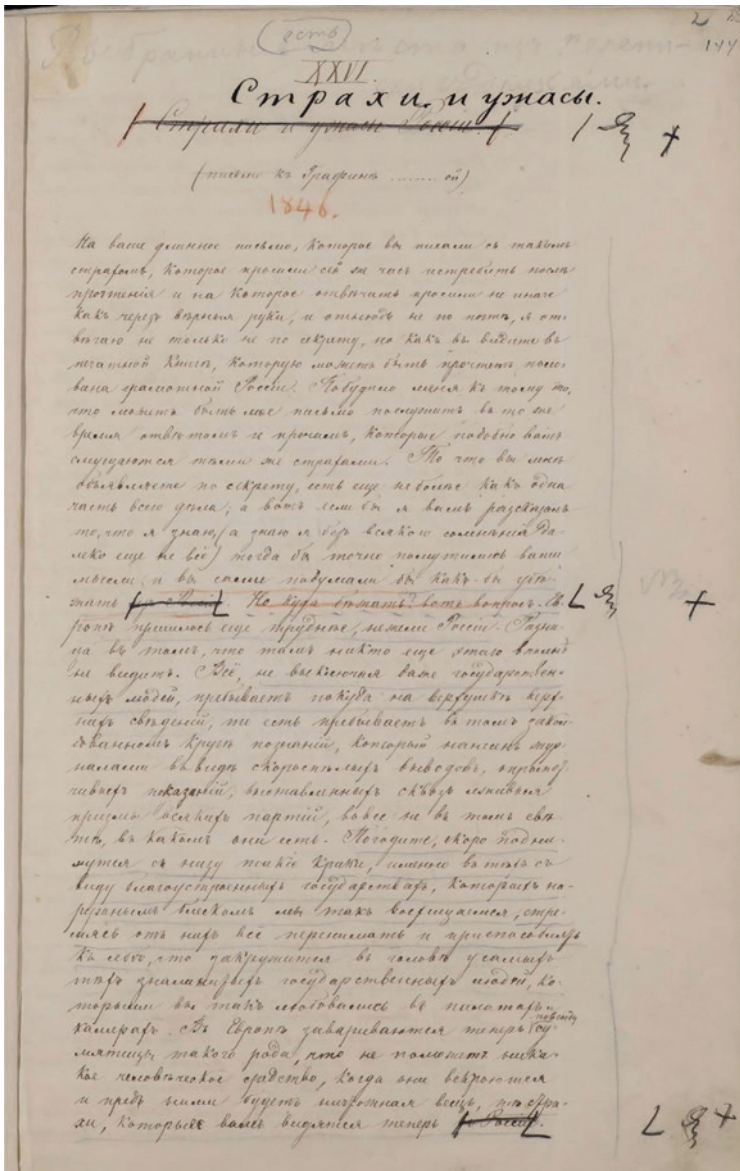 есть
144
XXVI.
Страхи и ужасы.
Страхи и ужасы Россіи.
(письмо къ Графинѣ ........ ой)
1846.
На ваше длинное письмо, которое вы писали съ такимъ
страхомъ, которое просили сей же часъ истребить послѣ
прочтенія и на которое отвѣчать просили не иначе
какъ черезъ вѣрныя руки, и отнюдь не по почтѣ, я от
вѣчаю не только не по секрету, но какъ вы видите въ
печатной книгѣ, которую можетъ быть прочтетъ поло-
вина грамотной Россіи. Побудило меня къ тому то,
что можетъ быть мое письмо послужитъ въ то же
время отвѣтомъ и прочимъ, которые подобно вамъ
смущаются тѣми же страхами. То что вы мнѣ
объявляете по секрету, есть еще не болѣе какъ одна
часть всего дѣла; а вотъ если бы я вамъ разсказалъ
то, что я знаю, (а знаю я безъ всякаго сомнѣнія да-
леко еще не всё) тогда бы точно помутились ваши
мысли, и вы сами подумали бы какъ бы убѣ-
жать изъ Россіи. Но куда бѣжать? вотъ вопросъ. Ев
ропѣ пришлось еще труднѣе, нежели Россіи. Разни-
ца въ томъ, что тамъ никто еще этаго вполнѣ
не видитъ. Всё, не выключая даже государствен-
ныхъ людей, пребываетъ покуда на верхушкѣ верх-
нихъ свѣдѣній, то есть пребываетъ въ томъ закол-
дованномъ кругѣ познаній, который нанесенъ жур-
налами въ видѣ скороспѣлыхъ выводовъ, опромет-
чивыхъ показаній, выставленныхъ сквозь лживыя
призмы всякихъ партій, вовсе не въ томъ свѣ
тѣ, въ какомъ они есть. Погодите, скоро подни-
мутся съ низу такіе крики, именно въ тѣхъ съ
виду благоустроенныхъ государствахъ, которыхъ на-
ружнымъ блескомъ мы такъ восхищаемся, стре-
мясь отъ нихъ всё перенимать и приспособлять
къ себѣ, что закружится въ голова у самыхъ
тѣхъ знаменитыхъ государственныхъ людей, ко-
торыми вы такъ любовались въ палатахъ и
камерахъ. Въ Европѣ завариваются теперь повсюду су
мятицы такого рода, что не поможетъ ника-
кое человѣческое средство, когда они вскроются
и предъ ними будетъ ничтожная вещь, тѣ стра-
хи, которые вамъ видятся теперь въ Россіи.